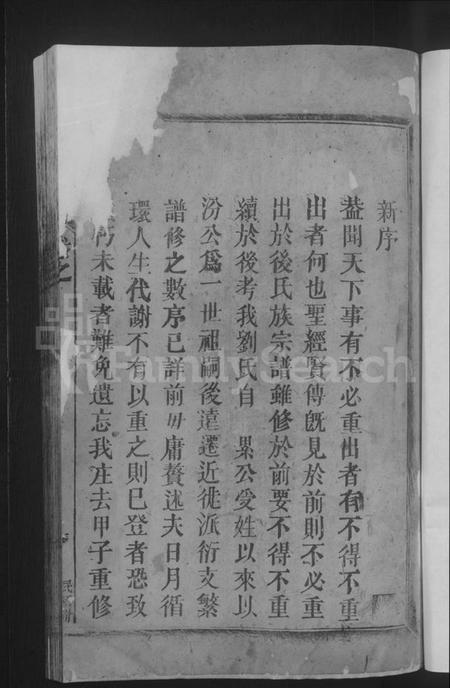 新序
蓋聞天下事有不必重出者有不得不重
出者何也聖經賢傳既見於前則不必重
出於後氏族宗譜雖修於前要不得不重
續於後考我劉氏自 累公受姓以來以
汾公爲一世祖嗣後遠遷近徙派衍支繁
譜修之數序已詳前毋庸贅述夫日月循
環人生代謝不有以重之則已登者恐致
朽未載者難免遺忘我庄去甲子重修
FamilySearch